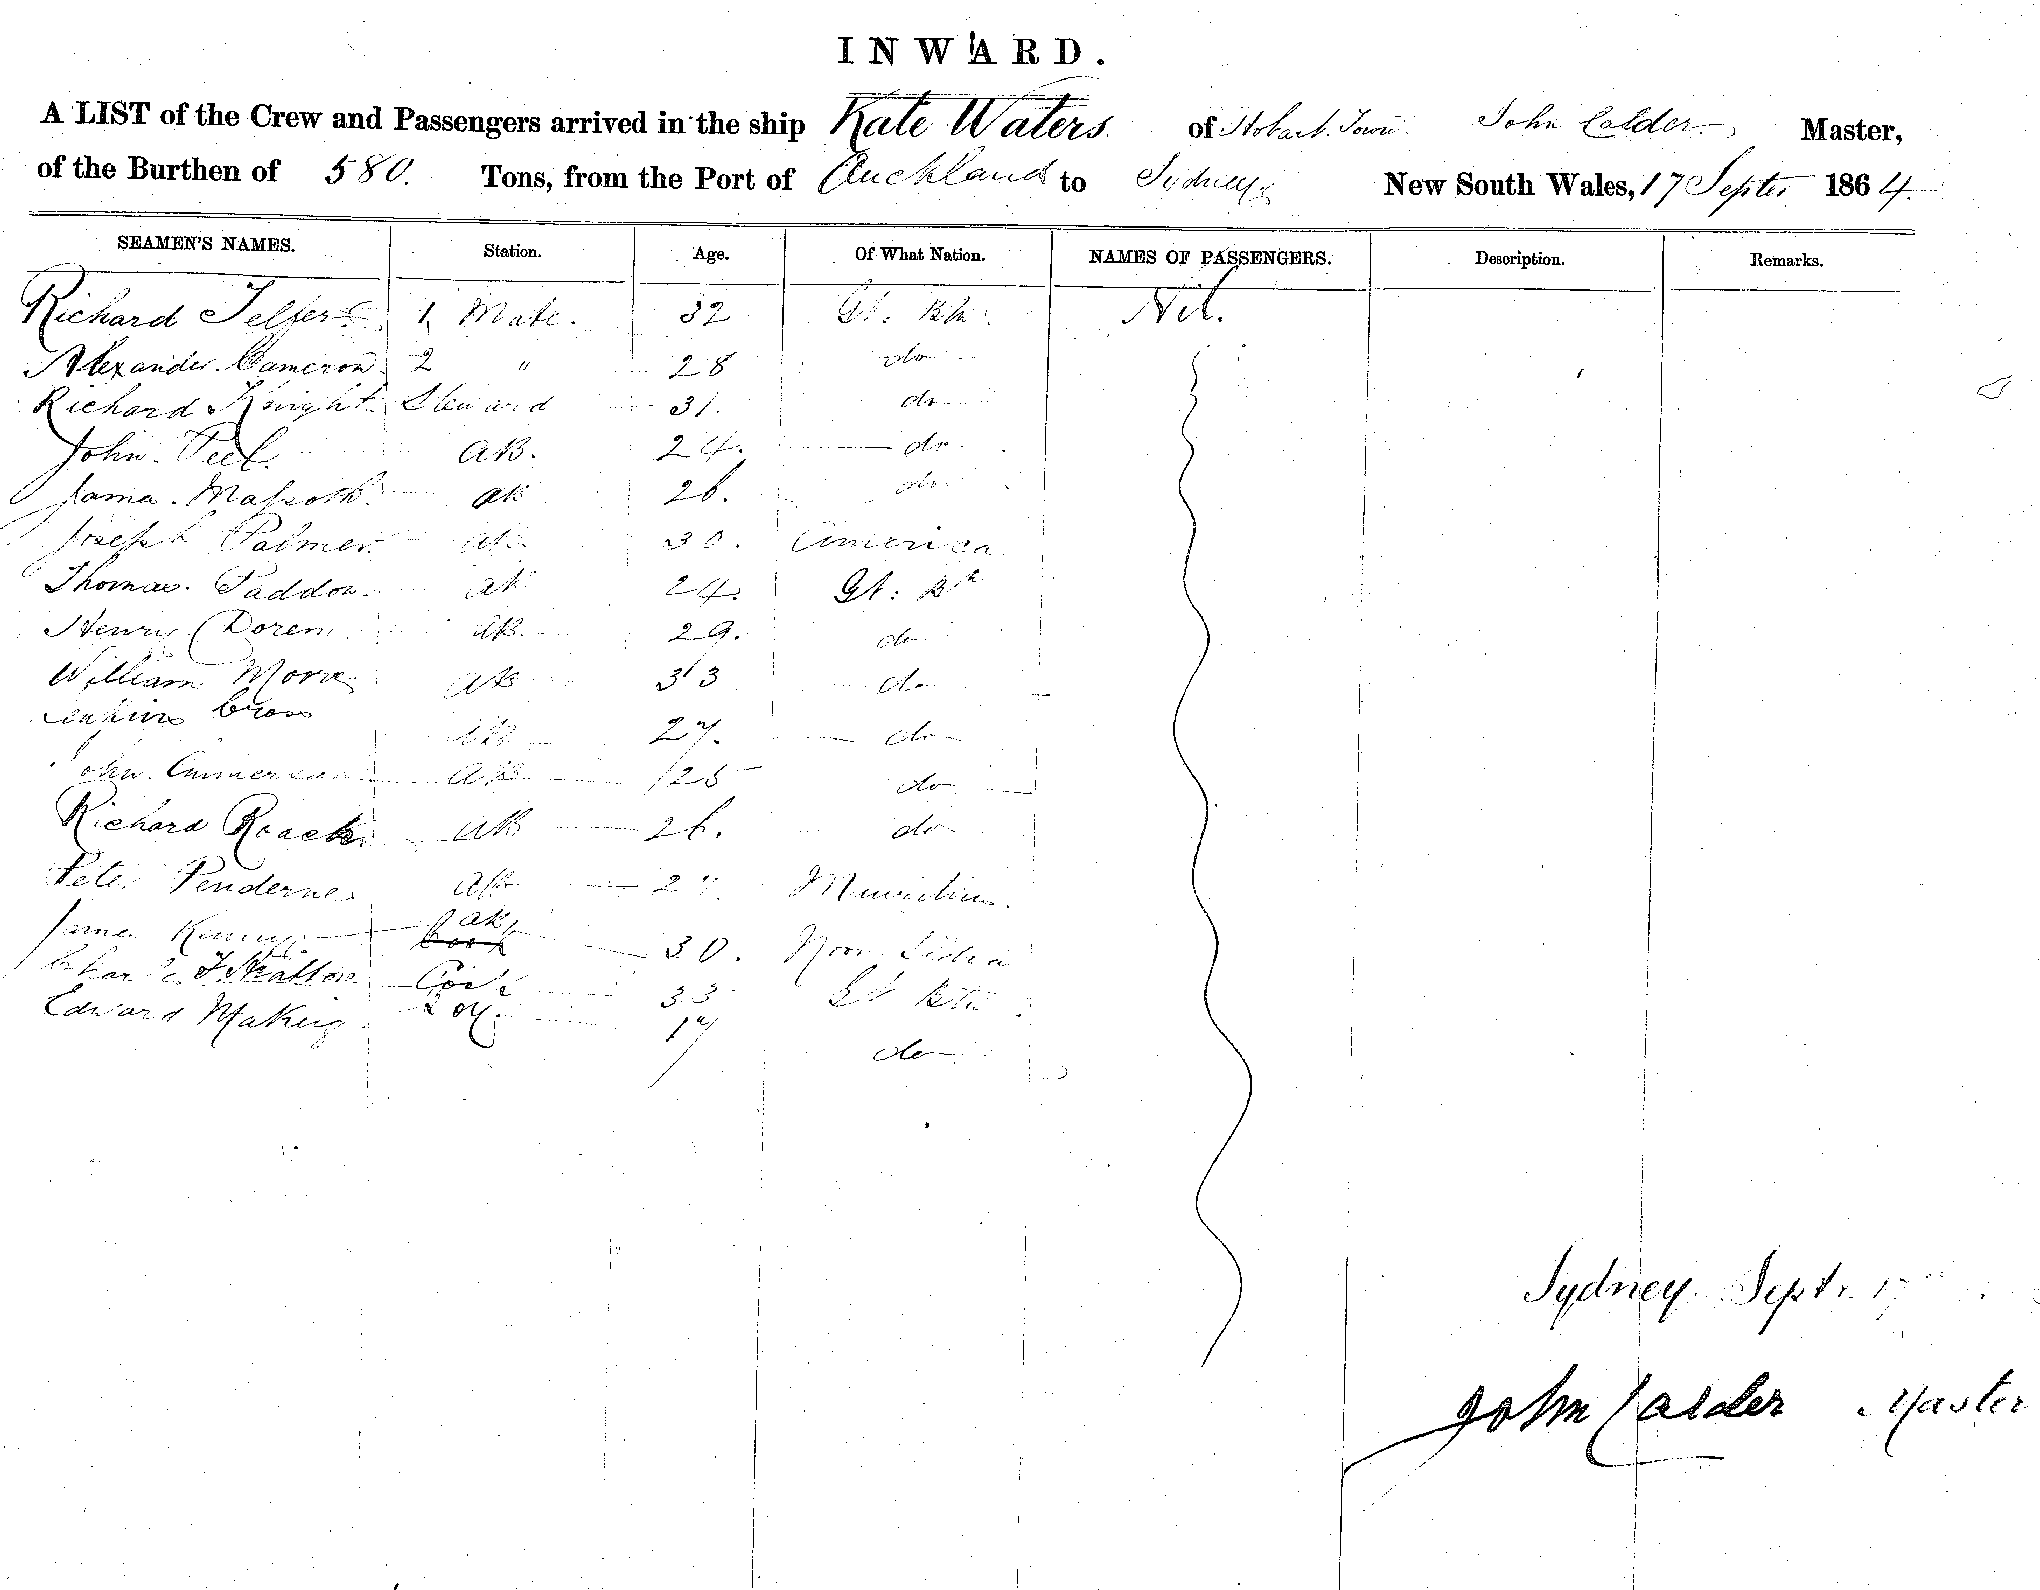 INWARD.
A LIST of the Crew and Passengers arrived in the ship Kate Waters of Hobart Town John Calder Master,
of the Burthen of 580. Tons, from the Port of Auckland to Sydney New South Wales, 17 Septr 1864.
SEAMEN'S NAMES. Station. Age. Of What Nation. NAMES OF PASSENGERS. Description. Remarks.
Richard Telfer 1 Mate. 32 Gt. Btn. Nil.
Alexander Cameron 2 " 28 do
Richard Knight Steward 31. do
John Peel AB. 24. do
James AB 26. do
Joseph Palmer AB 30. America
Thomas Paddon AB 24. Gt. Bn
Henry Doren AB 29. do
William Moore AB 33 do
Jenkins Cross AB 27. do
John AB 25 do
Richard Roach AB 26. do
Peter AB 27 Mauritius
James Kenny AB Cook 30. Nova Scotia
Charles Stratton Cook 33 Gt Btn
Edward Making Boy. 17 do
Sydney Septr. 17
John Calder Master